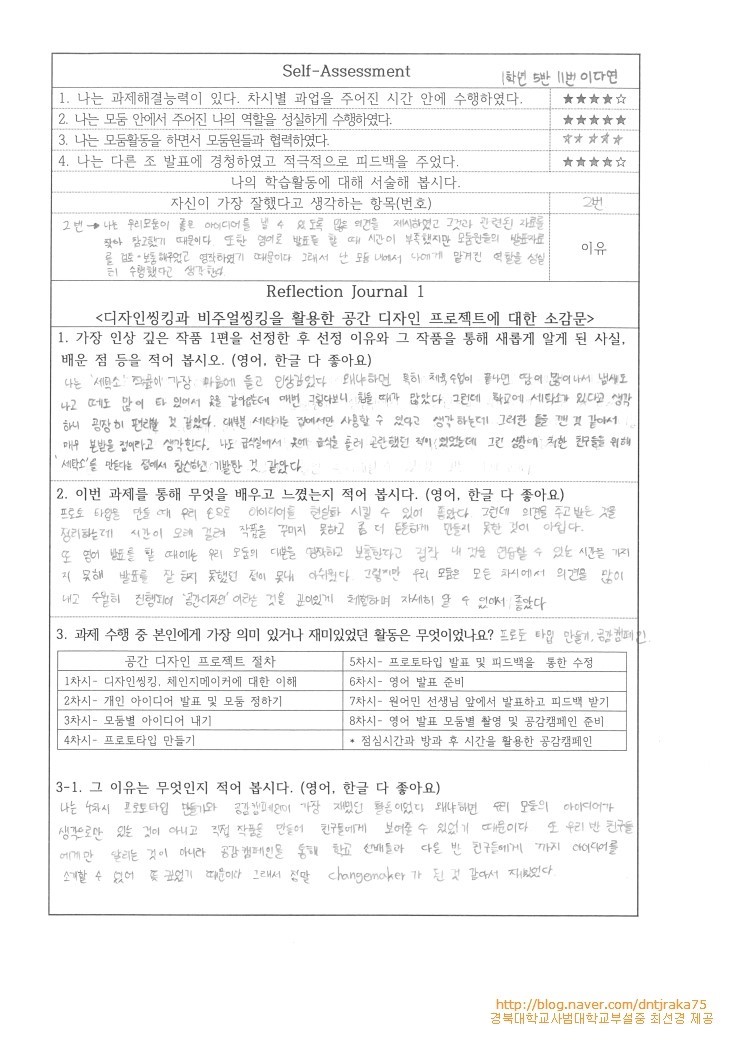 Self-Assessment
1학년 5반 11번 이다연
1. 나는 과제해결능력이 있다. 차시별 과업을 주어진 시간 안에 수행하였다. ★★★★☆
2. 나는 모둠 안에서 주어진 나의 역할을 성실하게 수행하였다. ★★★★★
3. 나는 모둠활동을 하면서 모둠원들과 협력하였다.
4. 나는 다른 조 발표에 경청하였고 적극적으로 피드백을 주었다. ★★★★☆
나의 학습활동에 대해 서술해 봅시다.
자신이 가장 잘했다고 생각하는 항목(번호) 2번
2번 → 나는 우리모둠이 좋은 아이디어를 낼 수 있도록 많은 의견을 제시하였고 그것과 관련된 자료를
찾아 참고했기 때문이다. 또한 영어로 발표를 할 때 시간이 부족했지만 모둠원들의 발표자료
를 보충해주었고 영작하였기 때문이다 그래서 난 모둠 내에서 나에게 맡겨진 역할을 성실
히 수행했다고 생각한다.
이유
Reflection Journal 1
<디자인씽킹과 비주얼씽킹을 활용한 공간 디자인 프로젝트에 대한 소감문>
1. 가장 인상 깊은 작품 1편을 선정한 후 선정 이유와 그 작품을 통해 새롭게 알게 된 사실,
배운 점 등을 적어 봅시오. (영어, 한글 다 좋아요)
나는 '세탁소' 작품이 가장 마음에 들고 인상깊었다 왜냐하면 특히 체육수업이 끝나면 땀이 많이나서 냄새도
나고 때도 많이 타 있어서 옷을 갈아입는데 매번 그렇다보니 힘들 때가 많았다. 그런데 학교에 세탁소가 있다고 생각
하니 굉장히 편리할 것 같았다. 대부분 세탁기는 집에서만 사용할 수 있다고 생각하는데 그러한 틀을 깬 것 같아서
매우 본받을 점이라고 생각한다. 나도 급식실에서 옷에 급식을 흘려 곤란했던 적이 있었는데 그런 상황에 처한 친구들을 위해
'세탁소'를 만든다는 점에서 참신하고 기발한 것 같았다.
2. 이번 과제를 통해 무엇을 배우고 느꼈는지 적어 봅시다. (영어, 한글 다 좋아요)
프로토 타입을 만들 때 우리 손으로 아이디어를 현실화 시킬 수 있어 좋았다. 그런데 의견을 주고 받는 것을
정리하는데 시간이 오래 걸려 작품을 꾸미지 못하고 좀 더 튼튼하게 만들지 못한 것이 아쉽다.
또 영어 발표를 할 때에는 우리 모둠의 대본을 영작하고 보충한다고 정작 내 것을 연습할 수 있는 시간을 가지
지 못해 발표를 잘 하지 못했던 점이 못내 아쉬웠다. 그렇지만 우리 모둠은 모든 차시에서 의견을 많이
내고 수월히 진행되어 '공간디자인' 이라는 것을 깊이있게 체험하며 자세히 알 수 있어서 좋았다
3. 과제 수행 중 본인에게 가장 의미 있거나 재미있었던 활동은 무엇이었나요? 프로토 타입 만들기, 공감캠페인.
공간 디자인 프로젝트 절차
5차시- 프로토타입 발표 및 피드백을 통한 수정
1차시- 디자인씽킹, 체인지메이커에 대한 이해
6차시- 영어 발표 준비
2차시- 개인 아이디어 발표 및 모둠 정하기
7차시- 원어민 선생님 앞에서 발표하고 피드백 받기
3차시- 모둠별 아이디어 내기
8차시- 영어 발표 모둠별 촬영 및 공감캠페인 준비
4차시- 프로토타입 만들기
* 점심시간과 방과 후 시간을 활용한 공감캠페인
3-1. 그 이유는 무엇인지 적어 봅시다. (영어, 한글 다 좋아요)
나는 4차시 프로토타입 만들기와 공감캠페인이 가장 재밌던 활동이었다 왜냐하면 우리 모둠의 아이디어가
생각으로만 있는 것이 아니고 직접 작품을 만들어 친구들에게 보여줄 수 있었기 때문이다 또 우리 반 친구들
에게만 알리는 것이 아니라 공감캠페인을 통해 학교 선배들과 다른 반 친구들에게 까지 아이디어를
소개할 수 있어 뜻 깊었기 때문이다 그래서 정말 changemaker가 된 것 같아서 재밌었다.
http://blog.naver.com/dntjraka75
경북대학교사범대학교부설중 최선경 제공